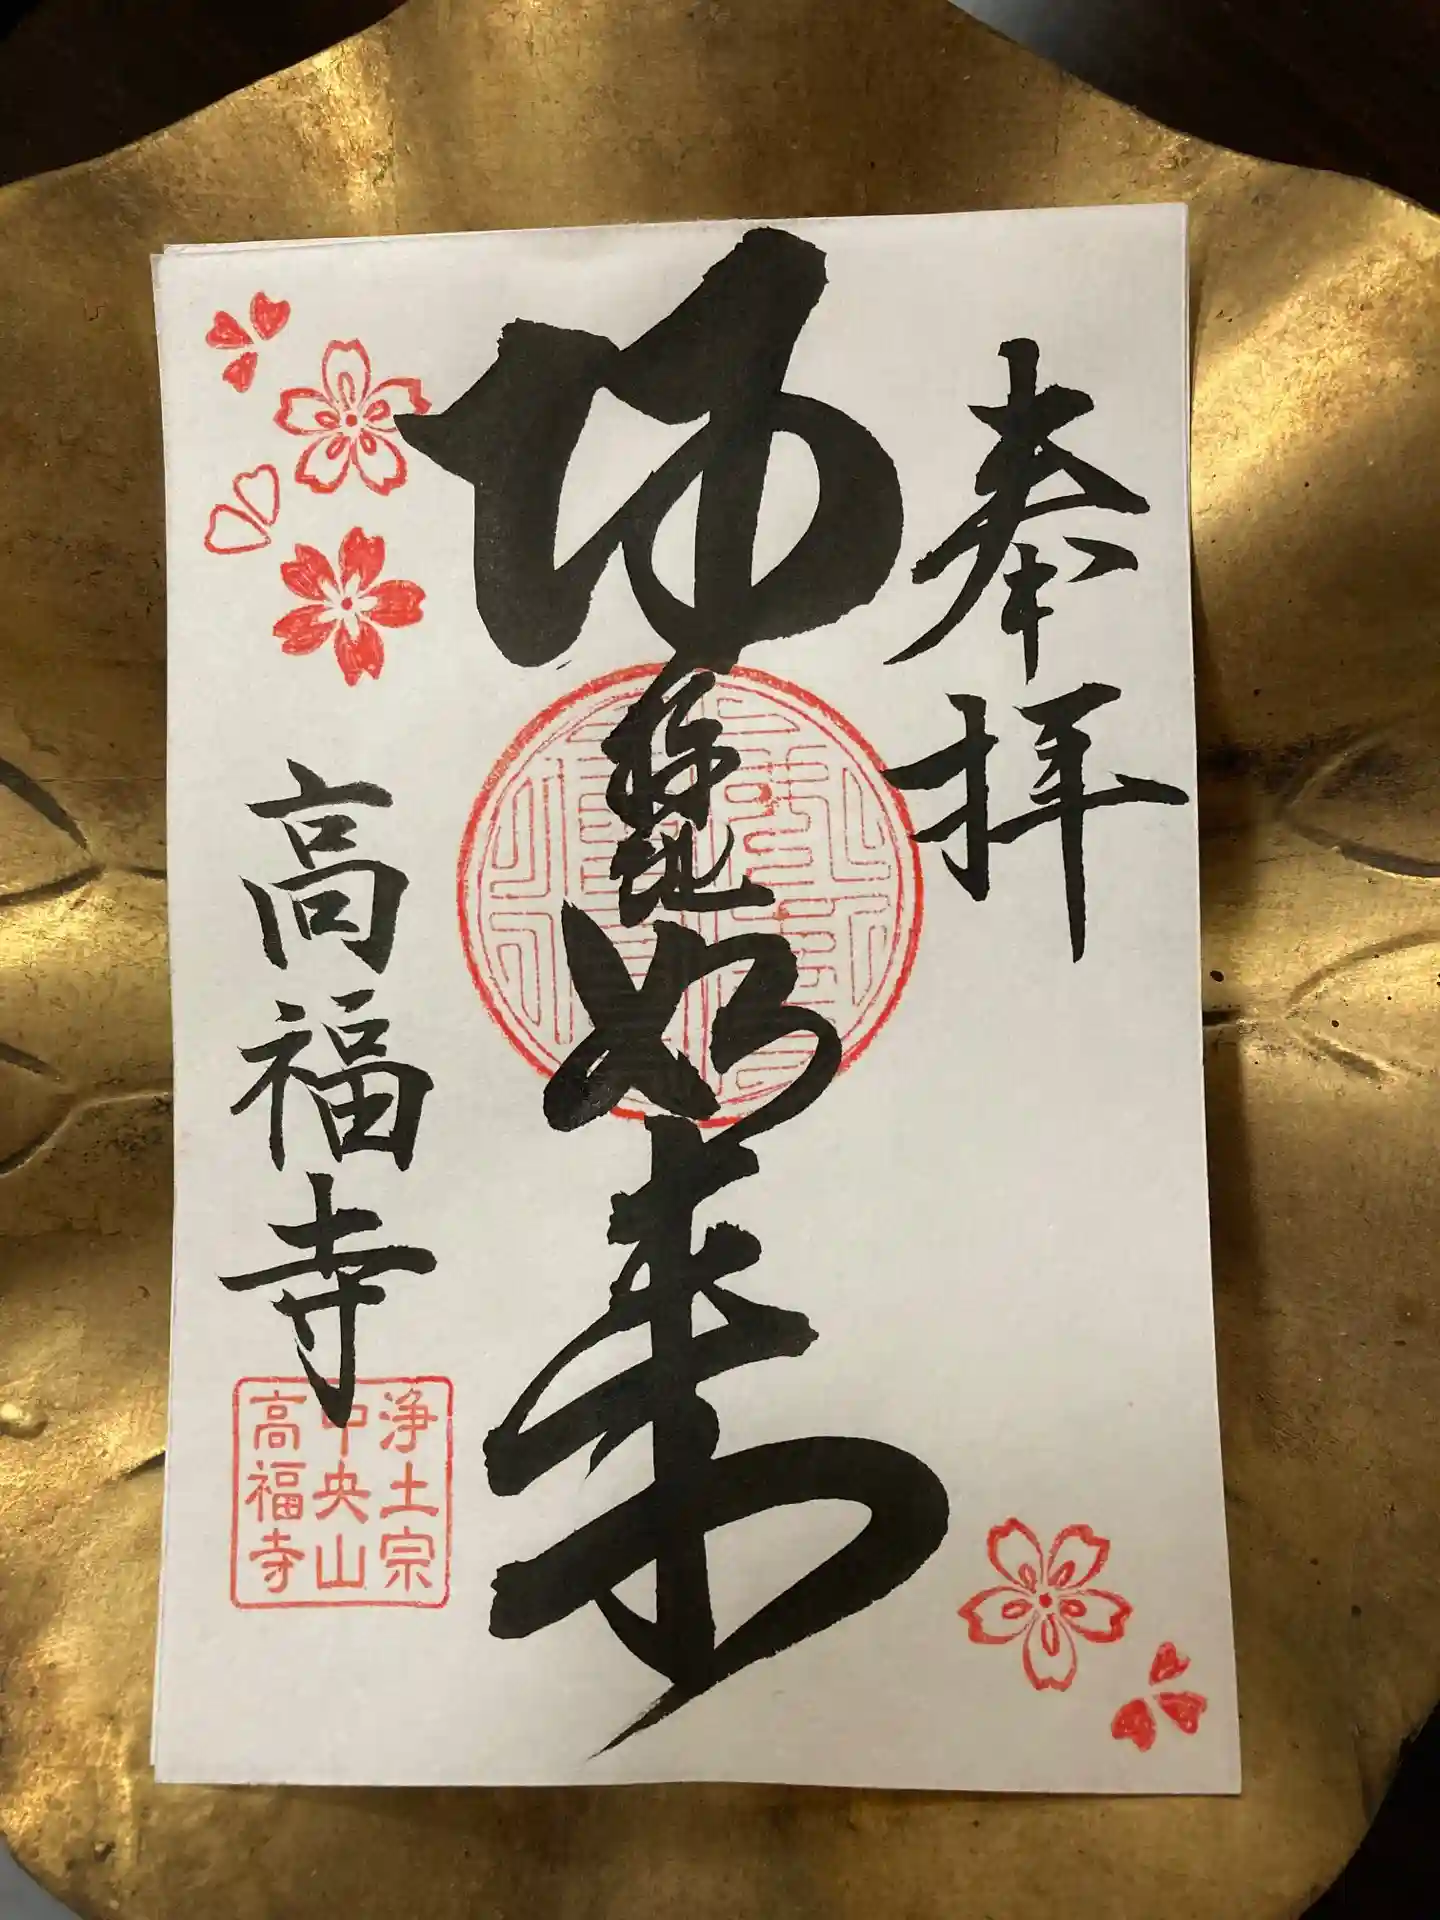 奉拝
阿弥陀如来
高福寺
浄土宗
中央山
高福寺